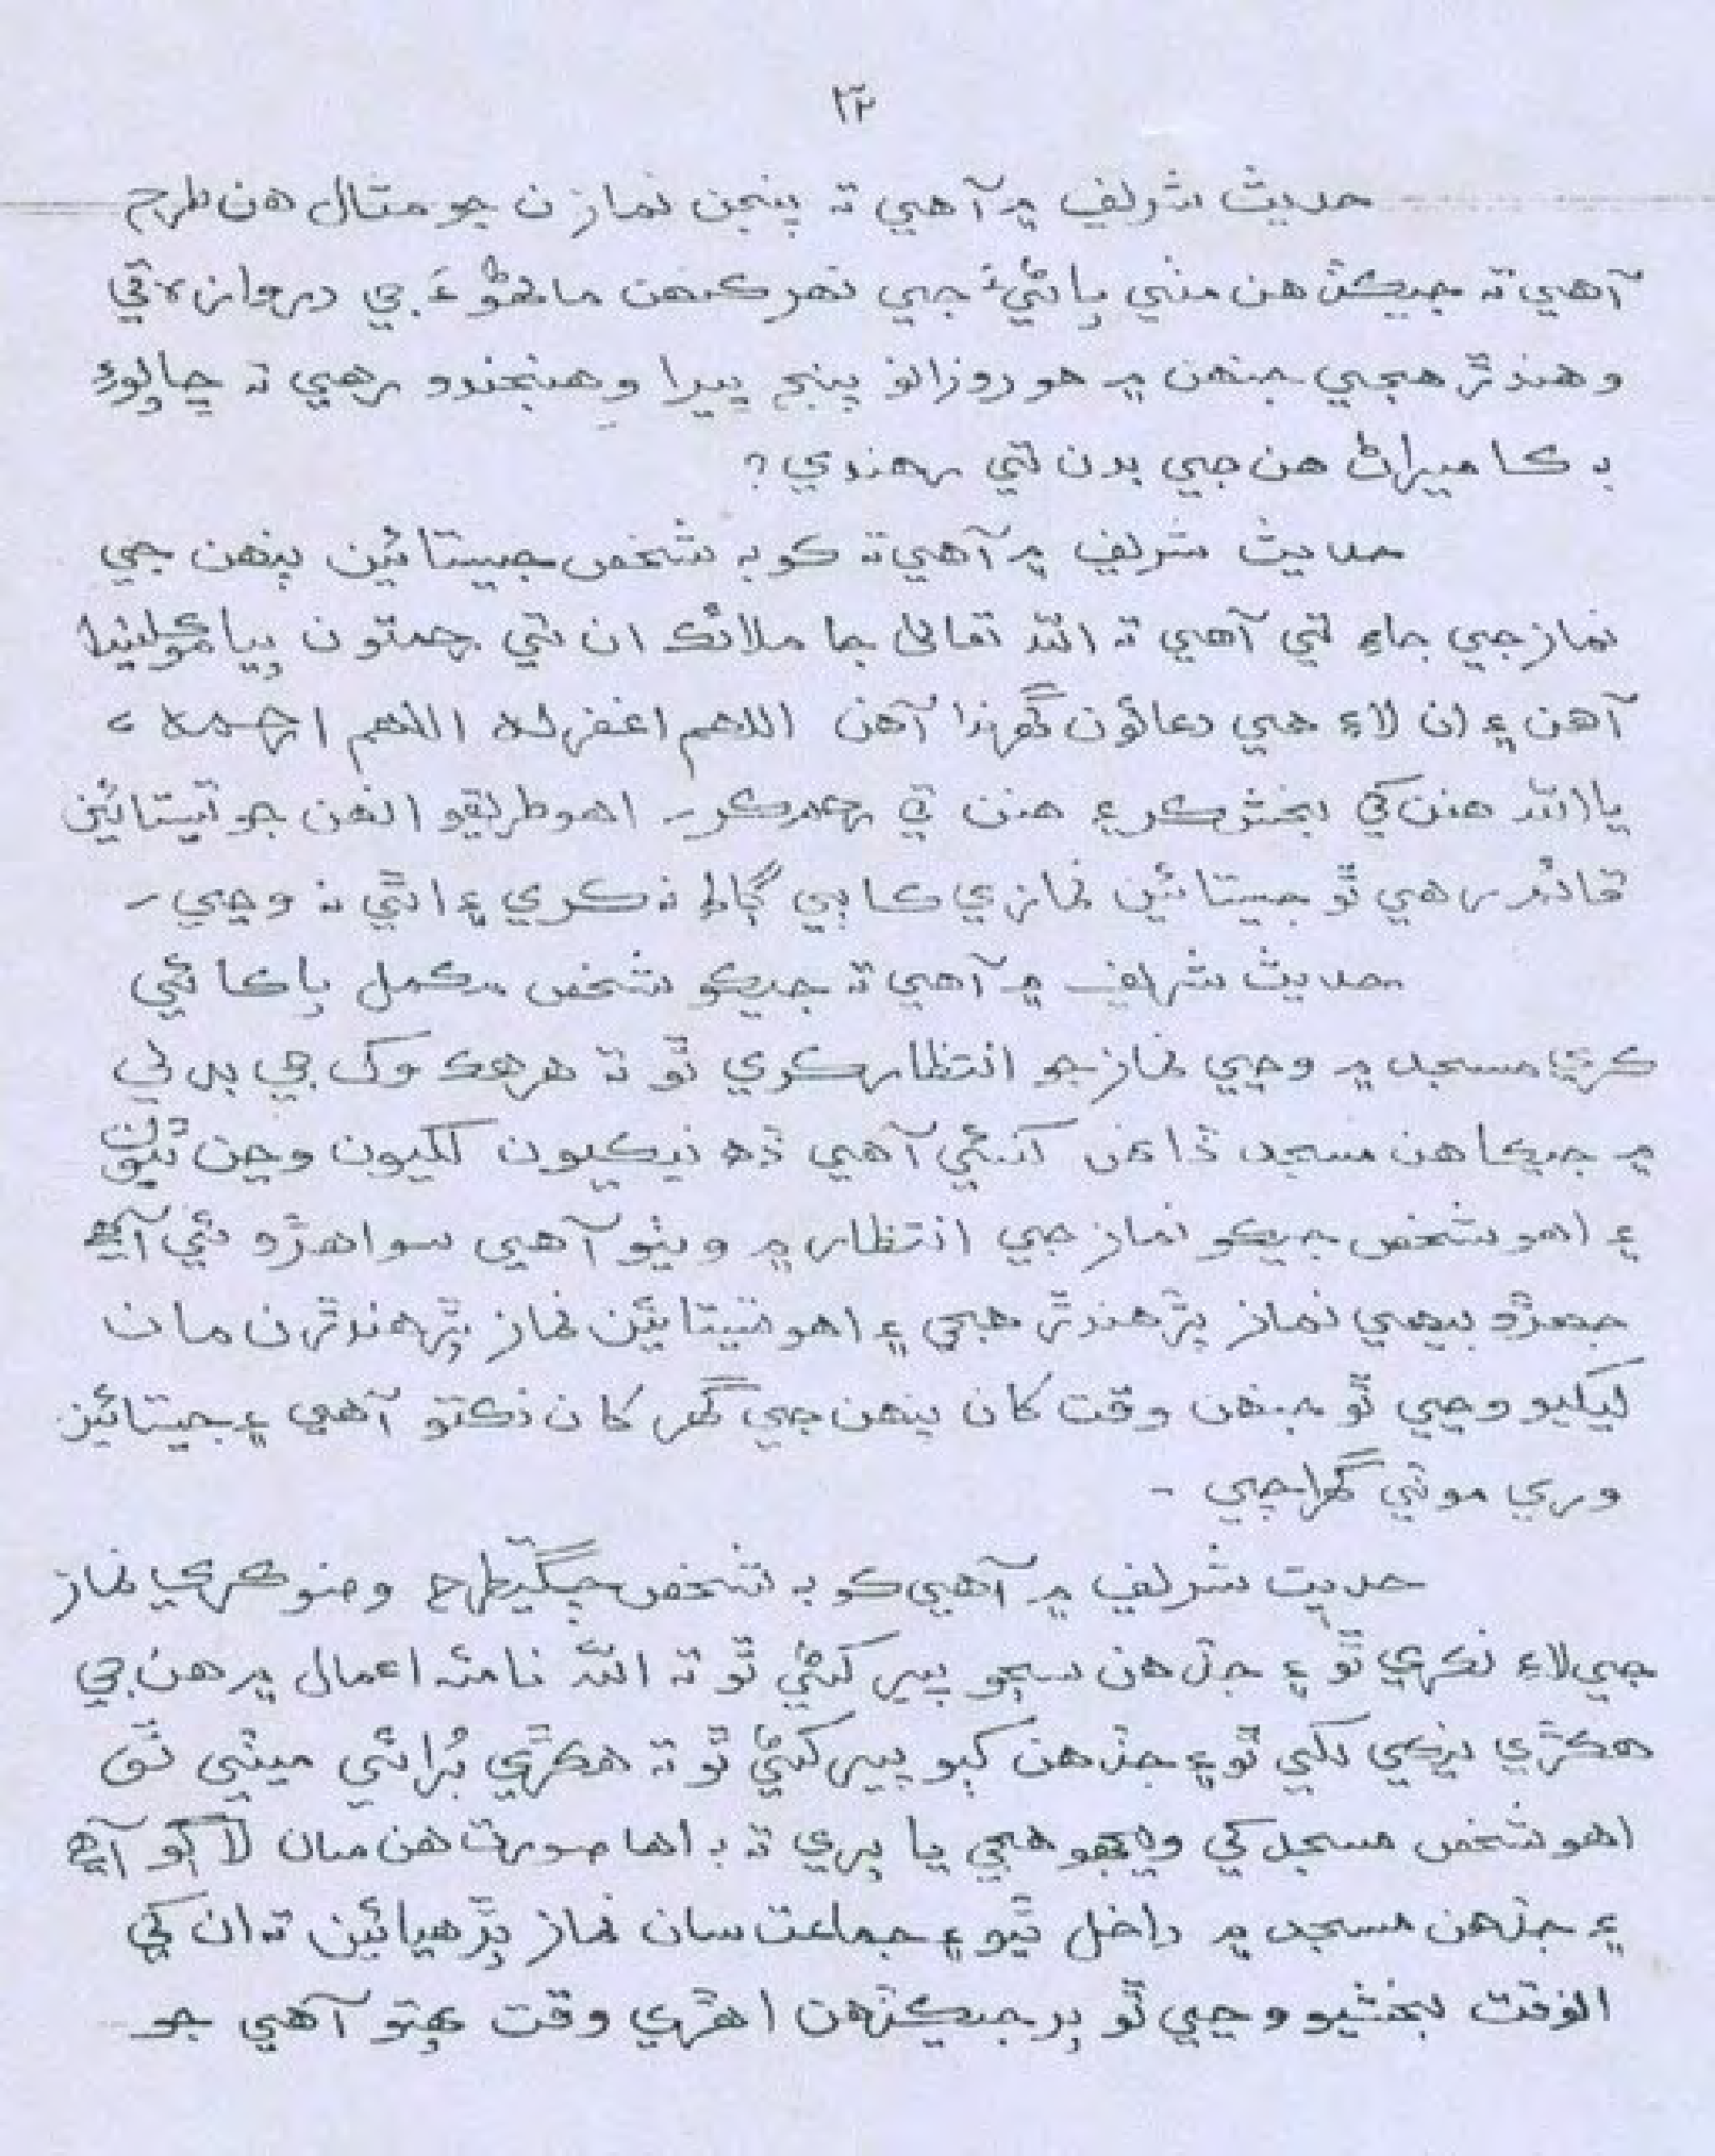 ١٣
حديث شريف ۾ آهي ته پنجن نمازن جو مثال هن طرح
آهي ته جيڪڏهن مٺي پاڻيءَ جي نهر ڪنهن ماڻهوءَ جي دروازه تي
وهندڙ هجي جنهن ۾ هو روزانو پنج ڀيرا وهنجندو رهي ته ڇا پوءِ
به ڪا ميراڻ هن جي بدن تي رهندي؟
حديث شريف ۾ آهي ته ڪو به شخص جيستائين پنهن جي
نماز جي جاءِ تي آهي ته الله تعاليٰ جا ملائڪ ان تي رحمتون پيا موڪليندا
آهن ۽ ان لاءِ هي دعائون گهرندا آهن اللهم اغفر له اللهم ارحمه ،
يا الله هنن کي بخش ڪر ۽ هنن تي رحم ڪر۔ اهو طريقو انهن جو تيستائين
قائم رهي ٿو جيستائين نمازي ڪا ٻي ڳالهه نه ڪري ۽ اٿي نه وڃي۔
حديث شريف ۾ آهي ته جيڪو شخص مڪمل پاڪائي
ڪري مسجد ۾ وڃي نماز جو انتظار ڪري ٿو ته هر هڪ وک جي بدلي
۾ جيڪا هن مسجد ڏانهن کنئي آهي ڏهه نيڪيون لکيون وڃن ٿيون
۽ اهو شخص جيڪو نماز جي انتظار ۾ ويٺو آهي سو اهڙو ئي آهي
جهڙو بيهي نماز پڙهندڙ هجي ۽ اهو تيستائين نماز پڙهندڙن مان
ليکيو وڃي ٿو جنهن وقت کان پنهن جي گهر کان نڪتو آهي ۽ جيستائين
وري موٽي گهر اچي -
حديث شريف ۾ آهي ڪو به شخص چڱيطرح وضو ڪري نماز
جي لاءِ نڪري ٿو ۽ جڏهن سڄو پير کڻي ٿو ته الله نامئه اعمال ۾ هن جي
هڪڙي نيڪي لکي ٿو ۽ جڏهن کٻو پير کڻي ٿو ته هڪڙي بُرائي ميٽي ٿو
اهو شخص مسجد کي ويجهو هجي يا پري ته به اها صورت هن سان لاڳو آهي
۽ جڏهن مسجد ۾ داخل ٿيو ۽ جماعت سان نماز پڙهيائين ته ان کي
الوقت بخشيو وڃي ٿو پر جيڪڏهن اهڙي وقت پهتو آهي جو